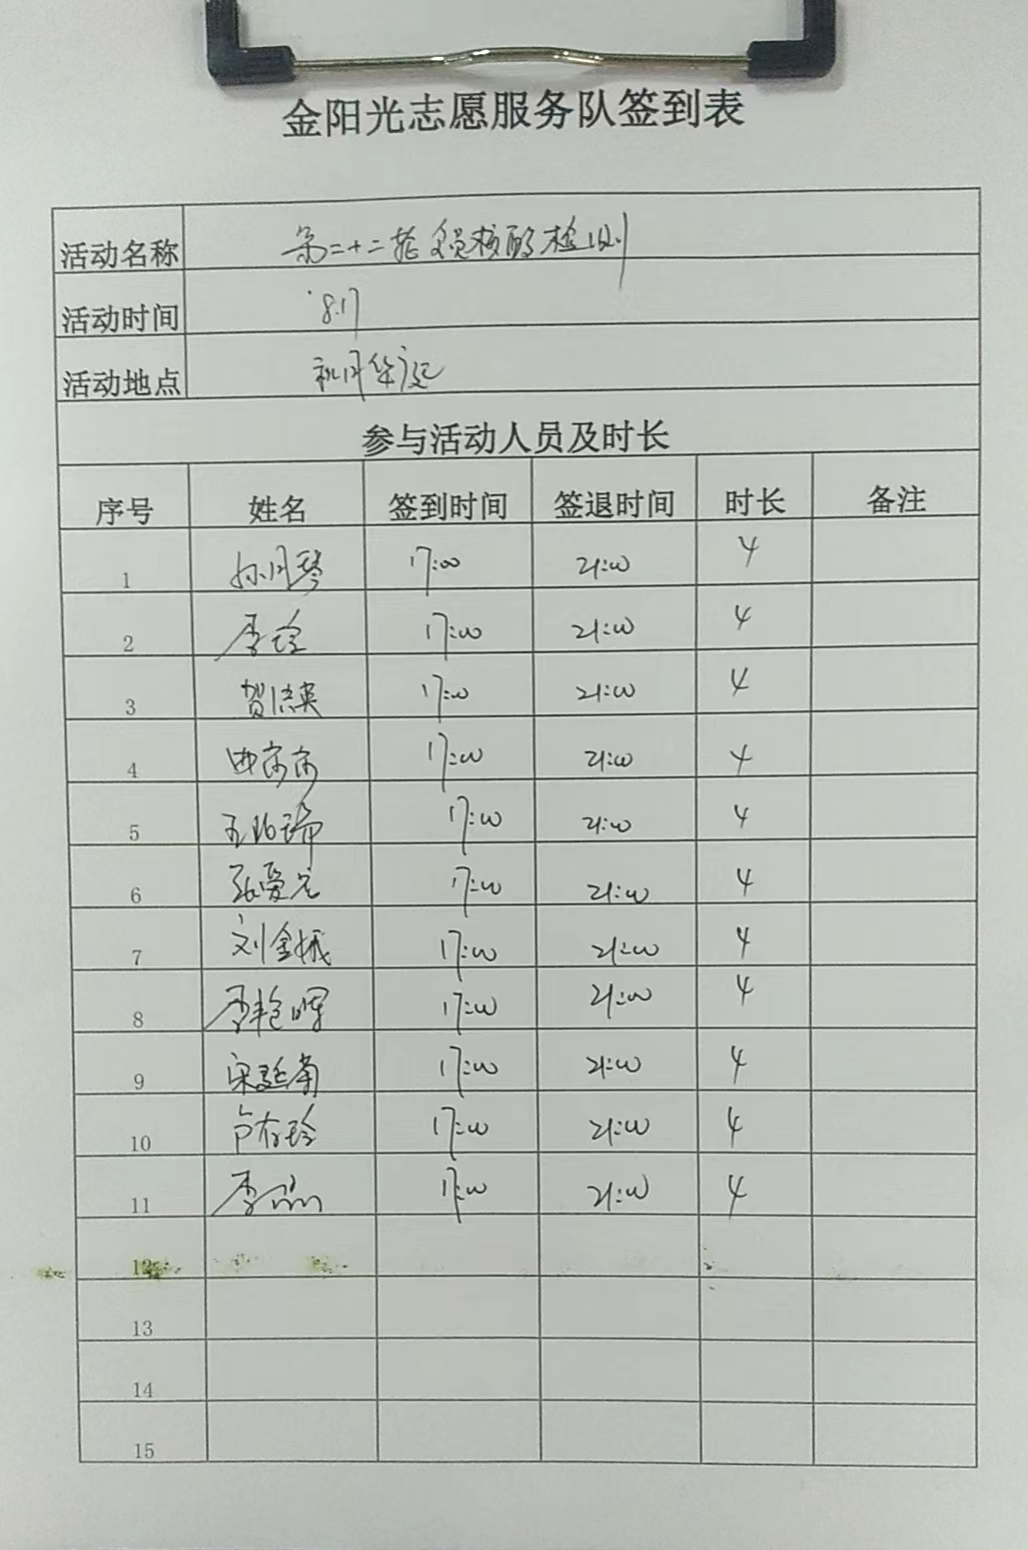 金阳光志愿服务队签到表
活动名称 第二十二轮全员核酸检测
活动时间 8.17
活动地点
参与活动人员及时长
序号 姓名 签到时间 签退时间 时长 备注
1 孙月琴 17:00 21:00 4
2 李玲 17:00 21:00 4
3 贺 英 17:00 21:00 4
4 17:00 21:00 4
5 王 瑞 17:00 21:00 4
6 张爱 17:00 21:00 4
7 刘金城 17:00 21:00 4
8 李艳晖 17:00 21:00 4
9 宋延菊 17:00 21:00 4
10 卢存玲 17:00 21:00 4
11 李晶 17:00 21:00 4
12
13
14
15